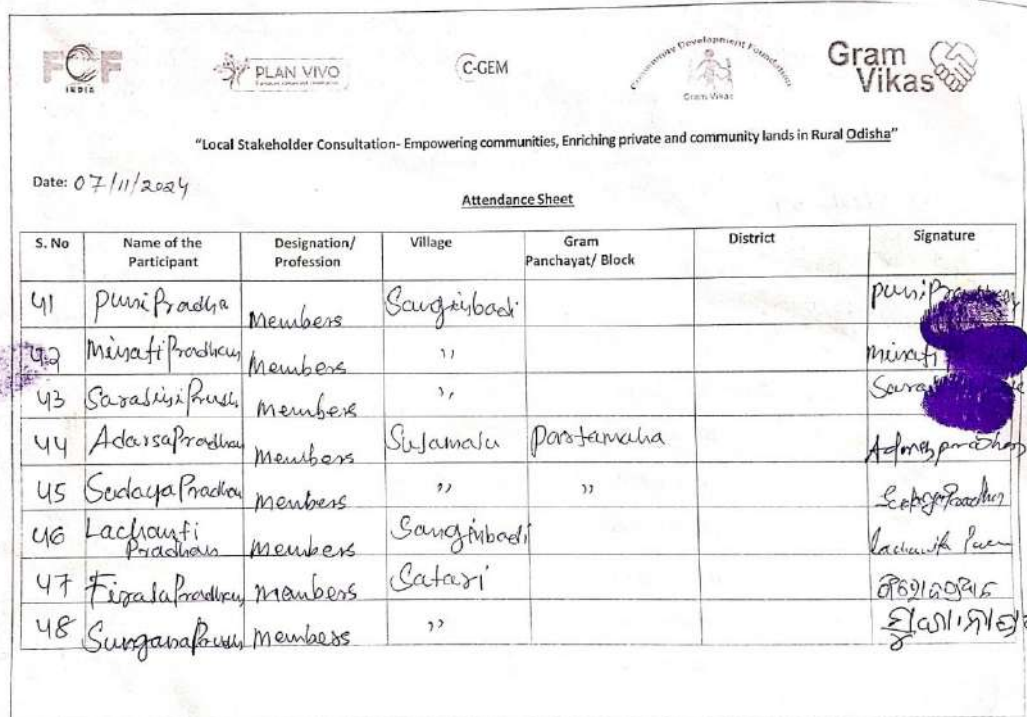 FCF
INDIA
PLAN VIVO
C-GEM
Community Development Foundation
Gram Vikas
Gram
Vikas
"Local Stakeholder Consultation- Empowering communities, Enriching private and community lands in Rural Odisha"
Date: 07/11/2024
Attendance Sheet
S. No Name of the Participant Designation/ Profession Village Gram Panchayat/ Block District Signature
41 Puni Pradha Members Sanginbadi
42 Minati Pradhan Members ,, Minati
43 Members ,,
44 Adarsa Pradhan Members Sujamalu
45 Sudaya Pradhan Members ,, ,,
46 Lachanti Pradhan Members Sanginbadi
47 Members Satari
48 Members ,,